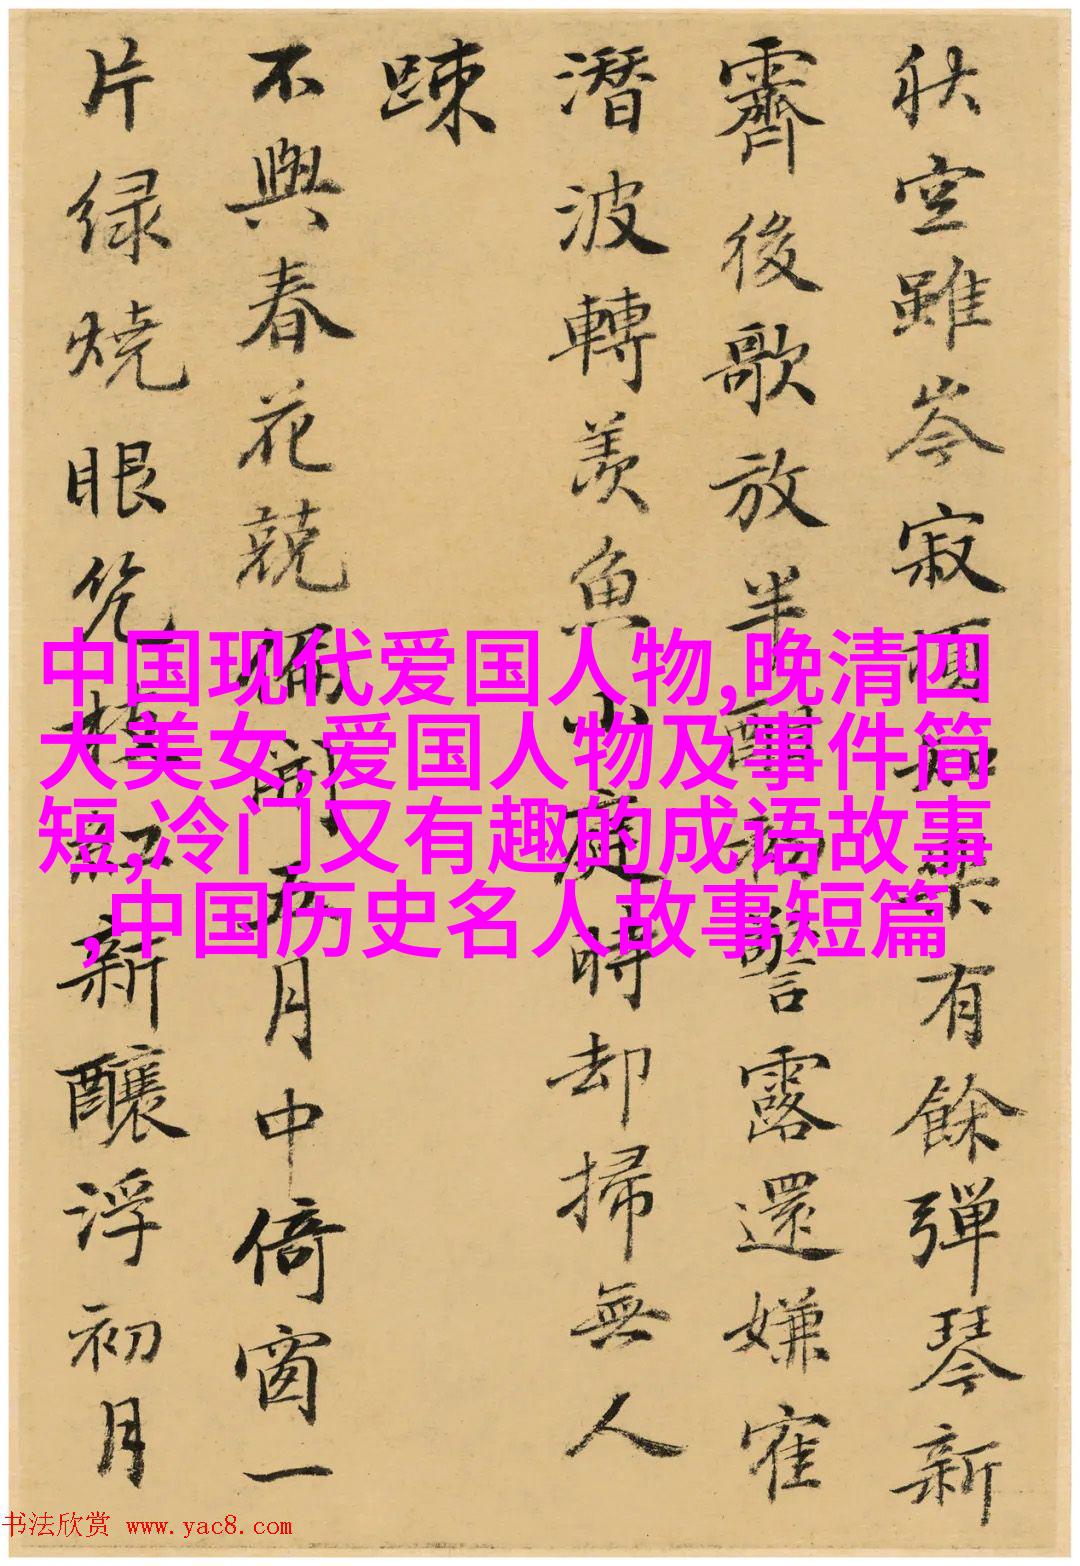 秋空雖岑寂樂有餘彈琴新
霽後歌放半酣初警露還嫌寉
潛波轉羨魚小庭時却掃無人
踈
不與春花競五月中倚窗一
片緑燒眼枝紅新釀浮初月
中国现代爱国人物,晚清四
大美女,爱国人物及事件简
短,冷门又有趣的成语故事
,中国历史名人故事短篇
书法欣赏 www.yac8.com